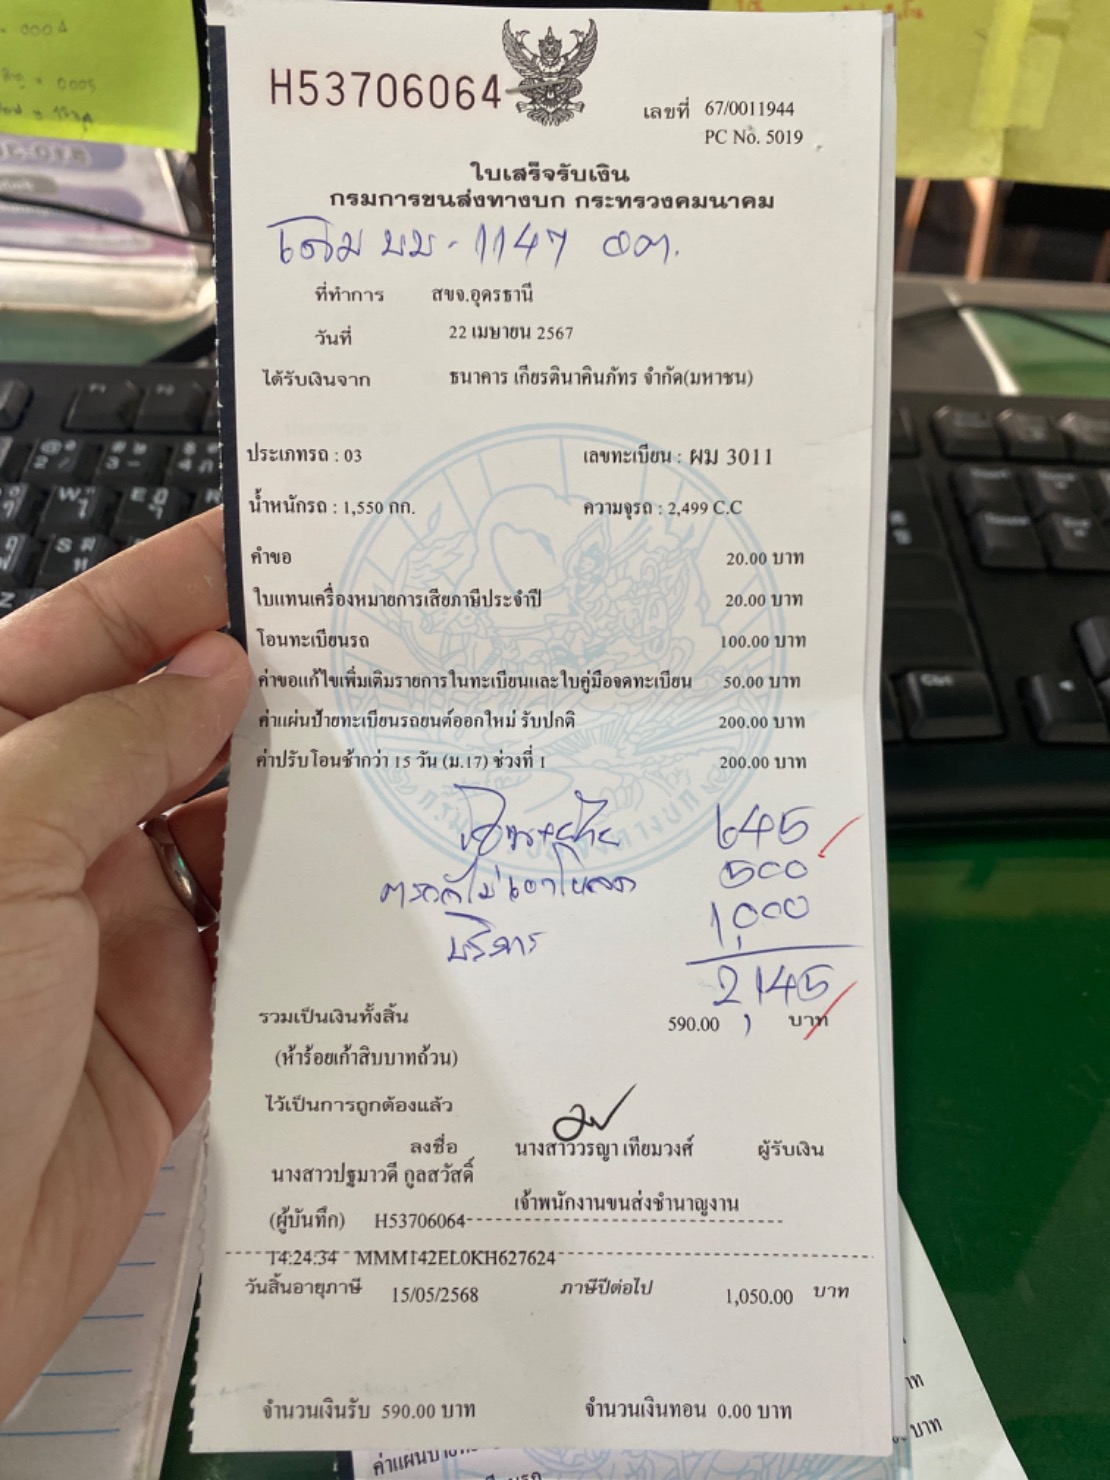 H53706064
เลขที่ 67/0011944
PC No. 5019
ใบเสร็จรับเงิน
กรมการขนส่งทางบก กระทรวงคมนาคม
เดิม บบ - 1147 อต.
ที่ทำการ สขจ.อุดรธานี
วันที่ 22 เมษายน 2567
ได้รับเงินจาก ธนาคาร เกียรตินาคินภัทร จำกัด(มหาชน)
ประเภทรถ : 03 เลขทะเบียน : ผม 3011
น้ำหนักรถ : 1,550 กก. ความจุรถ : 2,499 C.C
คำขอ 20.00 บาท
ใบแทนเครื่องหมายการเสียภาษีประจำปี 20.00 บาท
โอนทะเบียนรถ 100.00 บาท
ค่าขอแก้ไขเพิ่มเติมรายการในทะเบียนและใบคู่มือจดทะเบียน 50.00 บาท
ค่าแผ่นป้ายทะเบียนรถยนต์ออกใหม่ รับปกติ 200.00 บาท
ค่าปรับโอนช้ากว่า 15 วัน (ม.17) ช่วงที่ 1 200.00 บาท
645
500
บริการ 1,000
2,145
รวมเป็นเงินทั้งสิ้น 590.00 บาท
(ห้าร้อยเก้าสิบบาทถ้วน)
ไว้เป็นการถูกต้องแล้ว
ลงชื่อ นางสาววรญา เทียมวงศ์ ผู้รับเงิน
นางสาวปฐมาวดี กูลสวัสดิ์
เจ้าพนักงานขนส่งชำนาญงาน
(ผู้บันทึก) H53706064
14:24:34 MMM142EL0KH627624
วันสิ้นอายุภาษี 15/05/2568 ภาษีปีต่อไป 1,050.00 บาท
จำนวนเงินรับ 590.00 บาท จำนวนเงินทอน 0.00 บาท